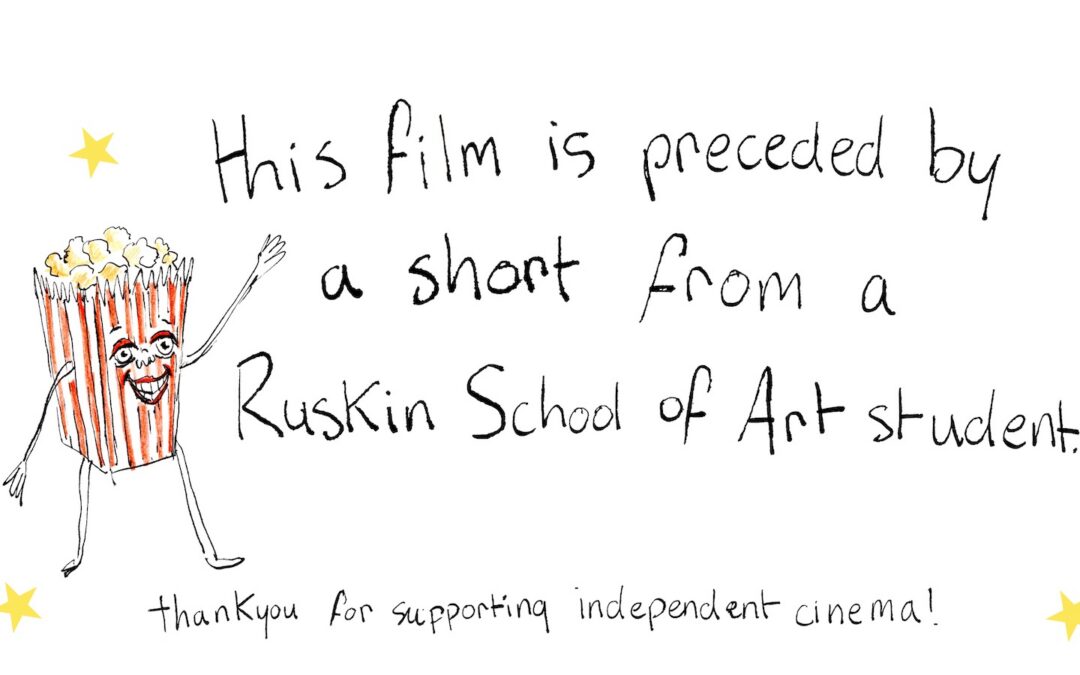 This film is preceded by
a short from a
Ruskin School of Art student.
thankyou for supporting independent cinema!